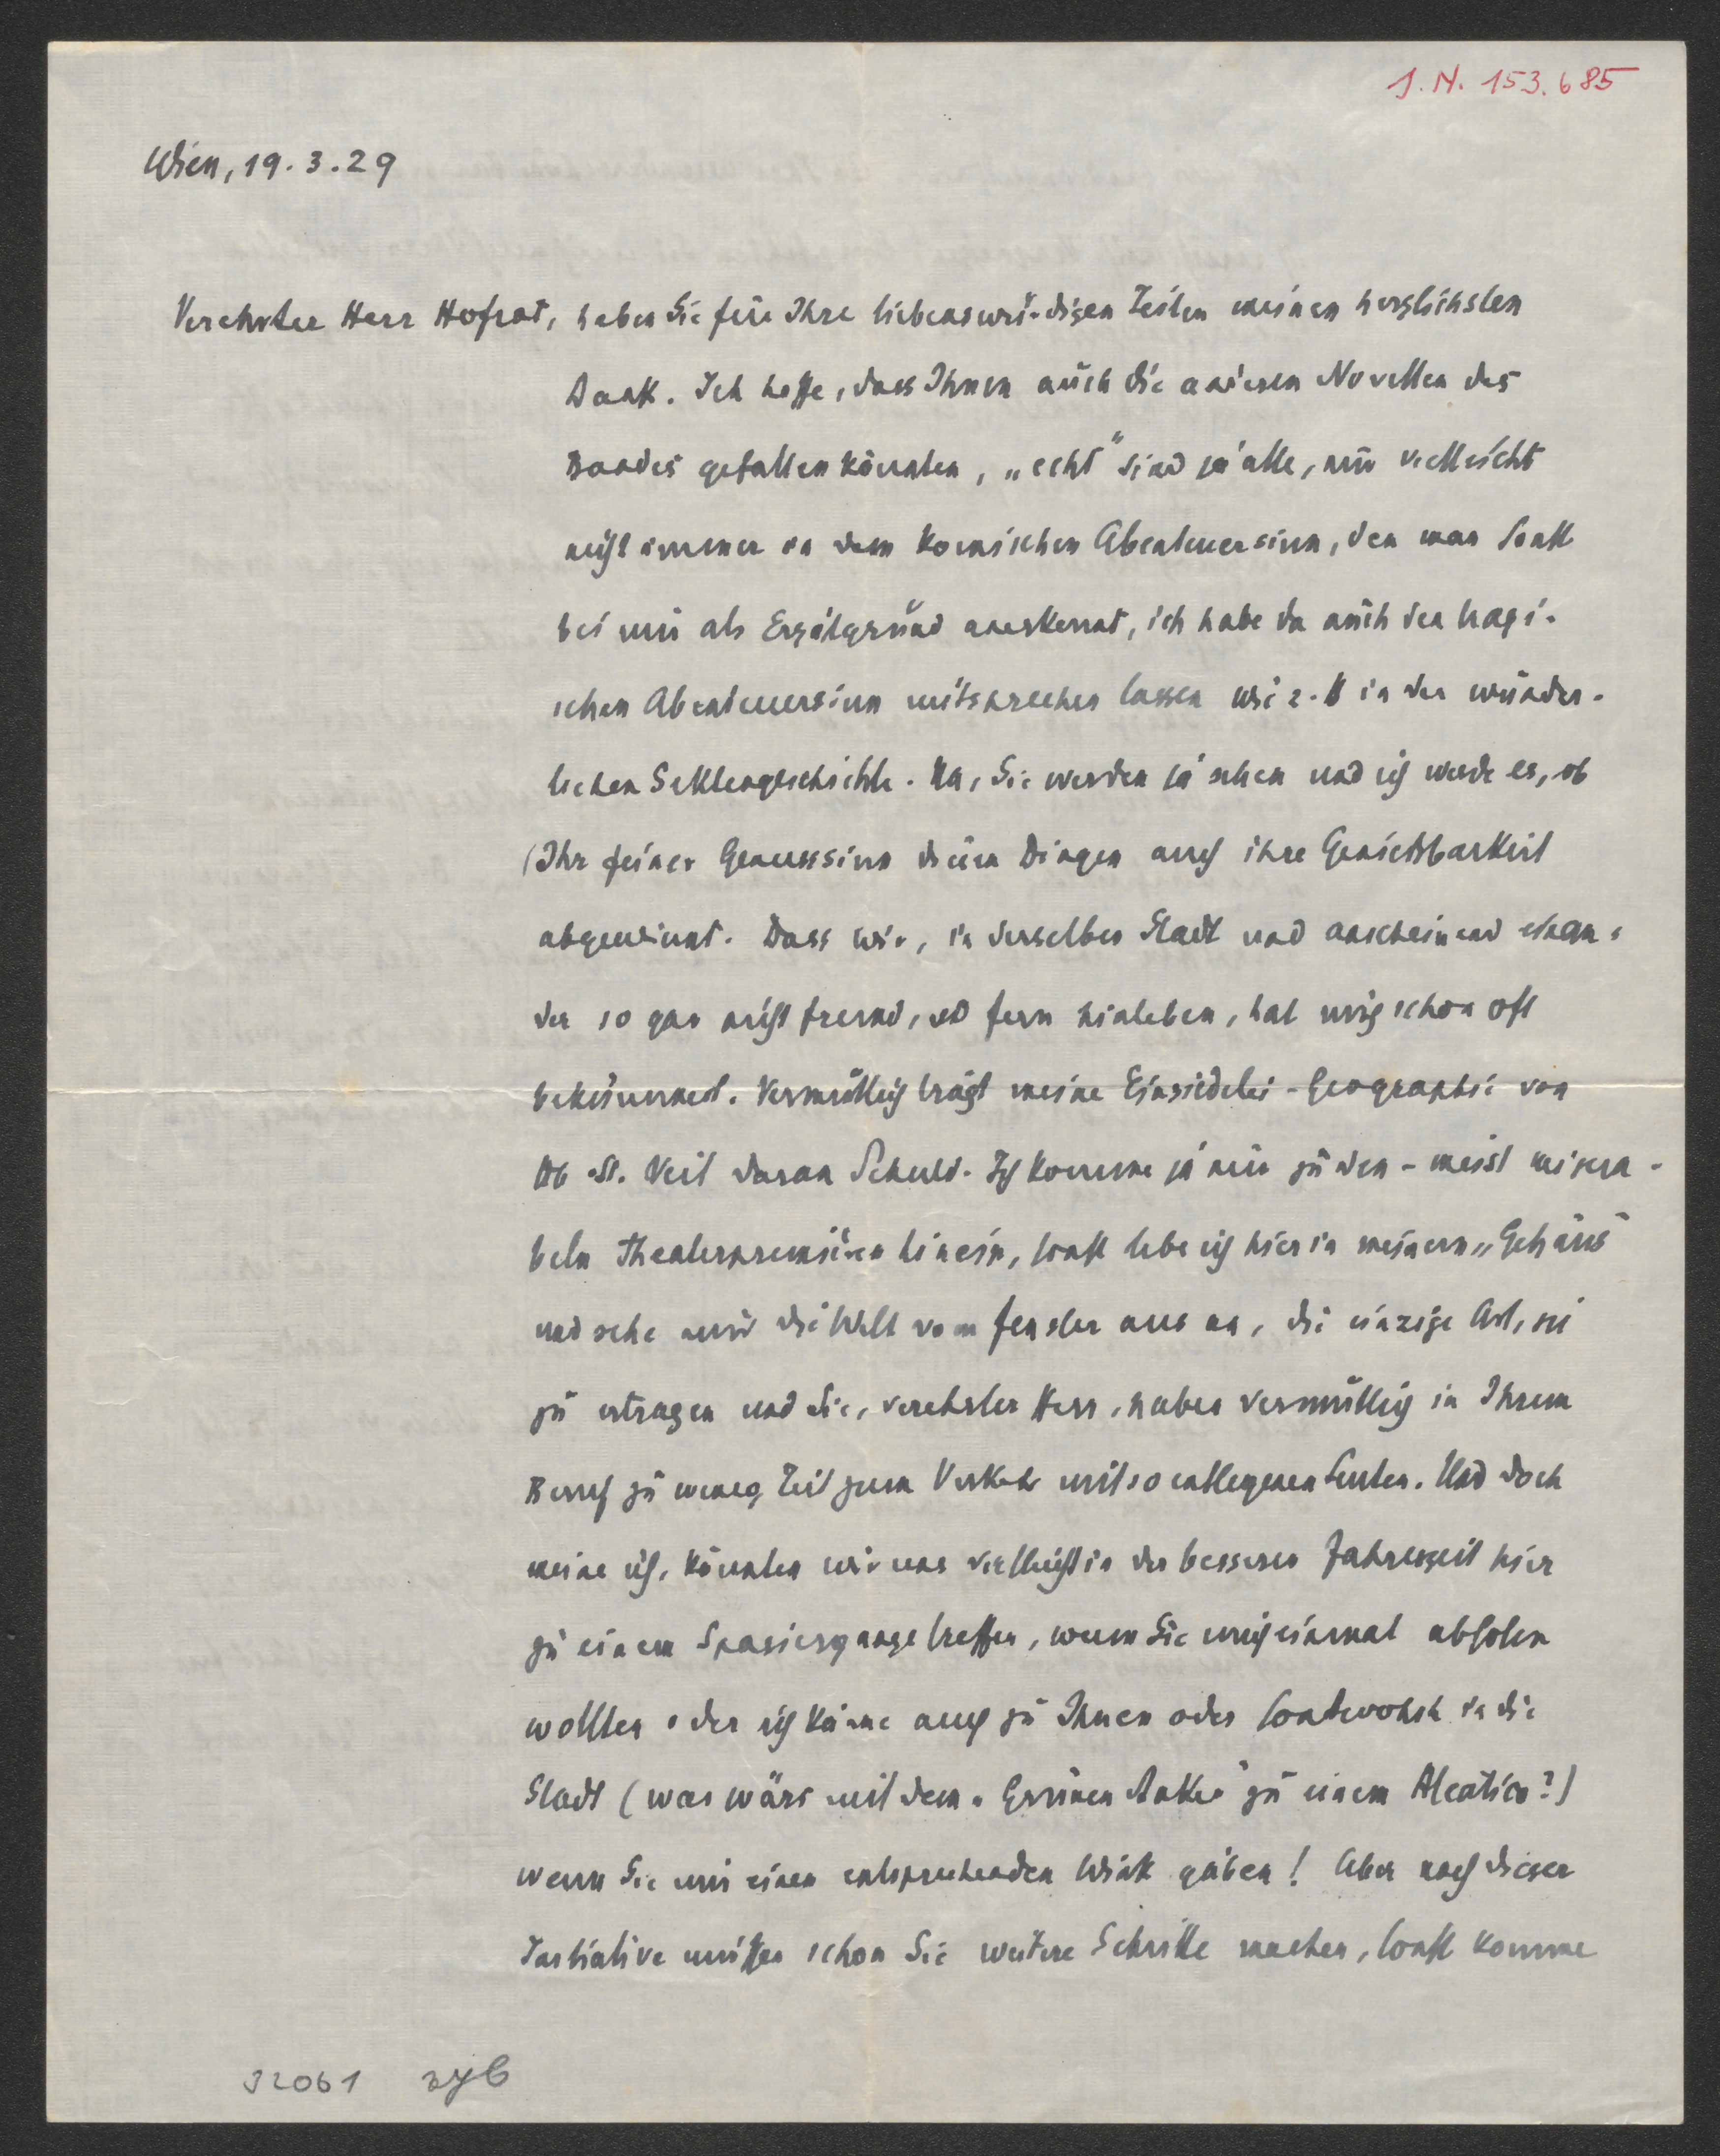 J. N. 153.685
Wien, 19.3.29
Verehrter Herr Hofrat, haben Sie für Ihre liebenswürdigen Zeilen meinen herzlichsten
Dank. Ich hoffe, dass Ihnen auch die anderen Novellen des
Bandes gefallen könnten, „echt“ sind ja alle, nur vielleicht
nicht immer in dem komischen Abenteuersinn, den man sonst
bei mir als Erzählgrund anerkennt, ich habe da auch den tragi-
schen Abenteuersinn mitsprechen lassen wie z. B in der wunder-
lichen Sektengeschichte. Na, Sie werden ja sehen und ich werde es, ob
Ihr feiner Genusssinn diesen Dingen auch ihre Geniessbarkeit
abgewinnt. Dass wir, in derselben Stadt und anscheinend einan-
der so gar nicht fremd, so fern hinleben, hat mich schon oft
bekümmert. Vermutlich trägt meine Einsiedelei-Geographie von
Ob. St. Veit daran Schuld. Ich komme ja nur zu den – meist misera-
beln Theaterpremièren hinein, sonst lebe ich hier in meinem „Gehäus“
und sehe mir die Welt vom Fenster aus an, die einzige Art, sie
zu ertragen und Sie, verehrter Herr, haben vermutlich in Ihrem
Beruf zu wenig Zeit zum Verkehr mit so entlegenen Leuten. Und doch
meine ich, könnten wir uns vielleicht in der besseren Jahreszeit hier
zu einem Spaziergange treffen, wenn Sie mich einmal abholen
wollten oder ich käme auch zu Ihnen oder sonstwohin in die
Stadt (was wärs mit dem „Grünen Anker“ zu einem Aleatico?)
wenn Sie mir einen entsprechenden Wink gäben! Aber nach dieser
Initiative müssen schon Sie weitere Schritte machen, sonst komme
32061